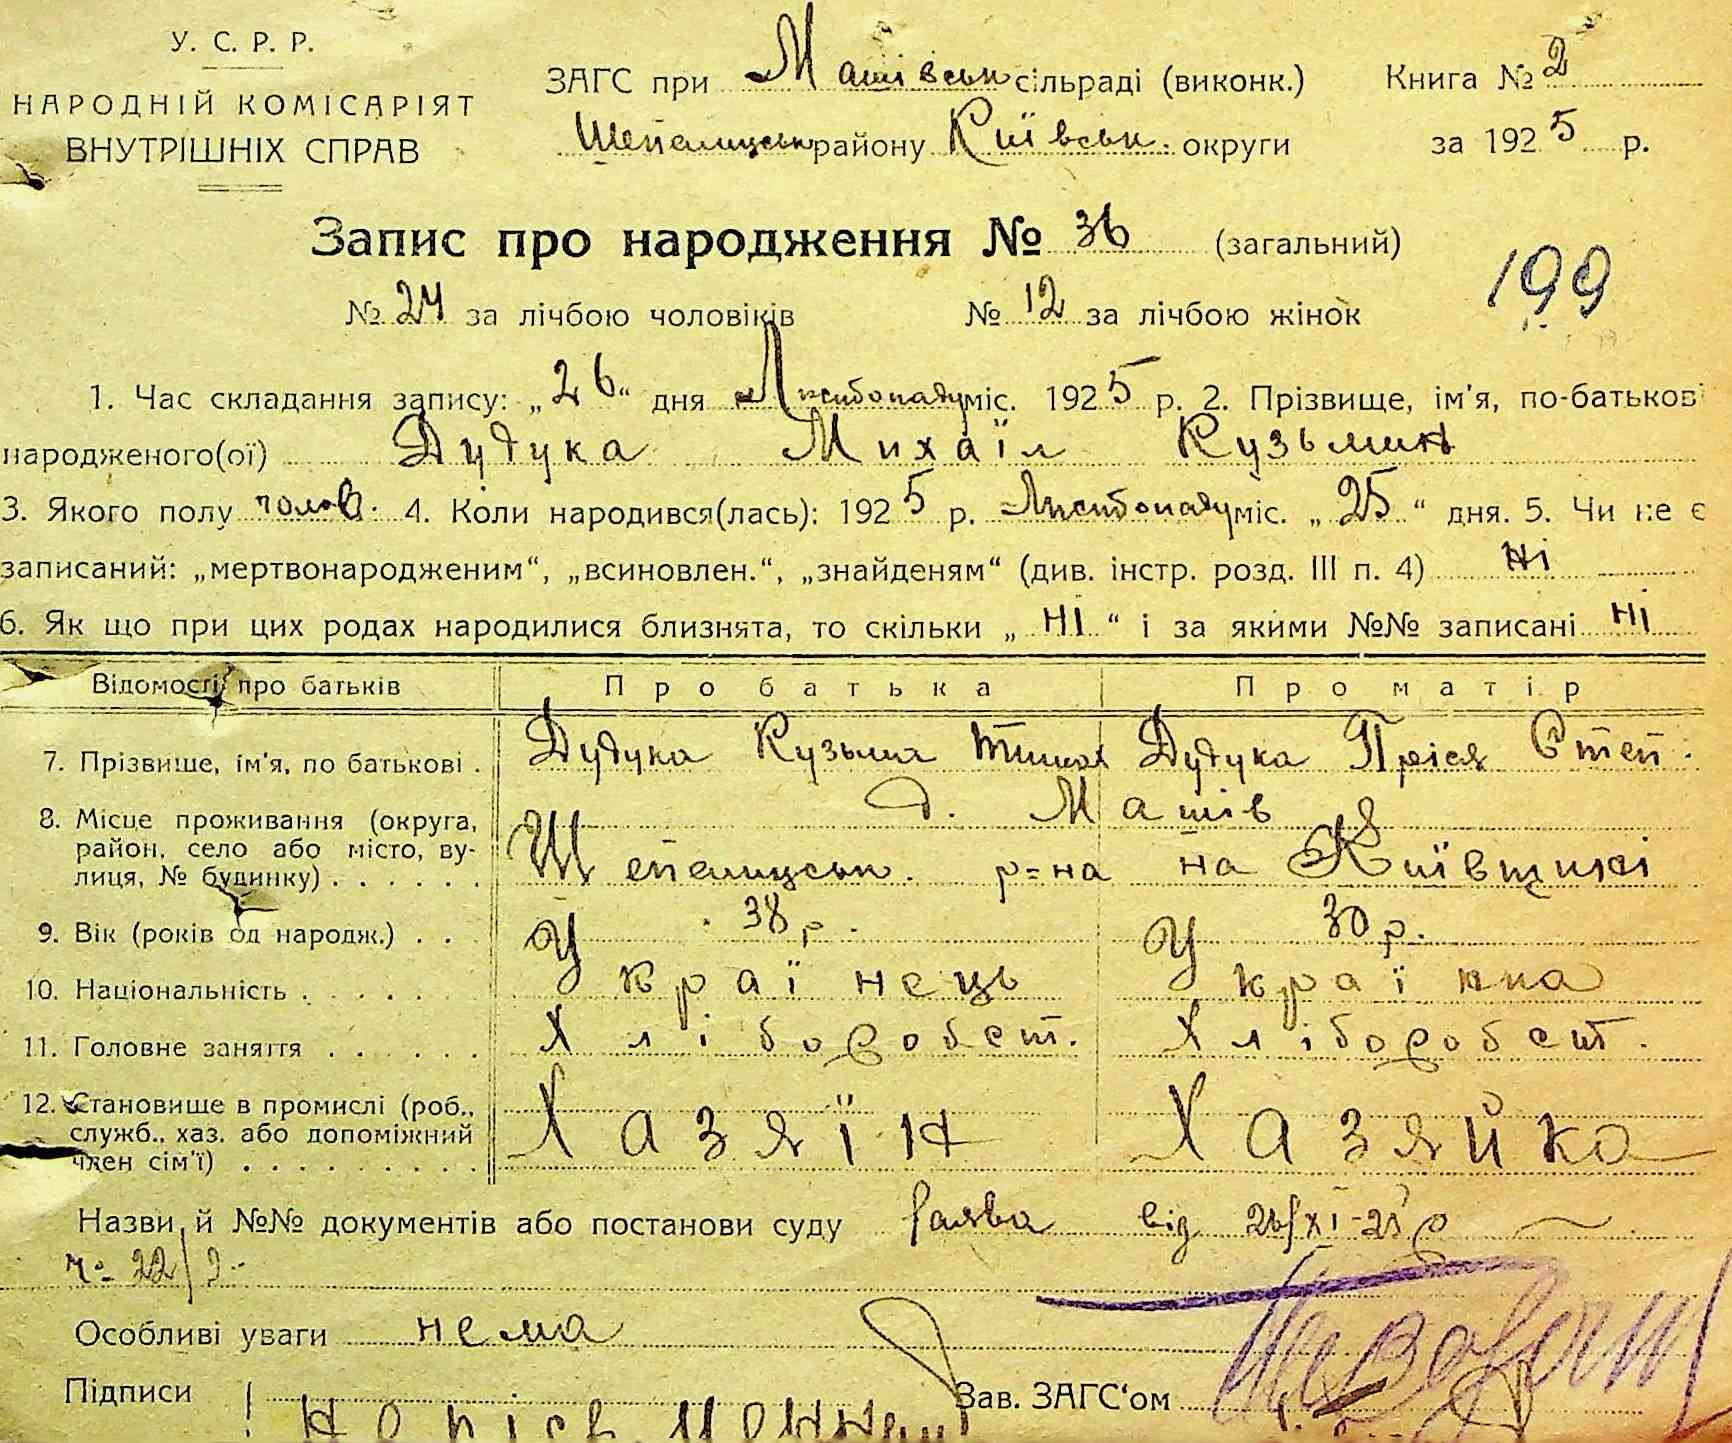 У. С. Р. Р.
НАРОДНІЙ КОМІСАРІЯТ
ВНУТРІШНІХ СПРАВ
ЗАГС при Машівськ сільраді (виконк.) Книга № 2
Шепелицьк району Київськ. округи за 1925 р.
Запис про народження № 36 (загальний)
199
№ 24 за лічбою чоловіків № 12 за лічбою жінок
1. Час складання запису: „26“ дня Листопаду міс. 1925 р. 2. Прізвище, ім'я, по-батькові
народженого(ої) Дудука Михаїл Кузьмин
3. Якого полу чолов. 4. Коли народився(лась): 1925 р. Листопаду міс. „25“ дня. 5. Чи не є
записаний: „мертвонародженим“, „всиновлен.“, „знайденям“ (див. інстр. розд. III п. 4) Ні
6. Як що при цих родах народилися близнята, то скільки „Ні“ і за якими №№ записані Ні
Відомості про батьків Про батька Про матір
7. Прізвише, ім'я, по батькові . Дудука Кузьма Дудука Пріся Степ.
8. Місце проживання (округа, д. Машів
район, село або місто, ву-
лиця, № будинку) . . . . . . Шепелицьк. р=на на Київщині
9. Вік (років од народж.) . . 38 р. 30 р.
10. Національність . . . . . . Українець Українка
11. Головне заняття . . . . . . Хліборобст. Хліборобст.
12. Становише в промислі (роб.,
служб., хаз. або допоміжний Хазяїн Хазяйка
член сім'ї) . . . . . . . . .
Назви й №№ документів або постанови суду Заява від 26/XI-25 р
ч= 22/
Особливі уваги нема
Підписи Зав. ЗАГС'ом